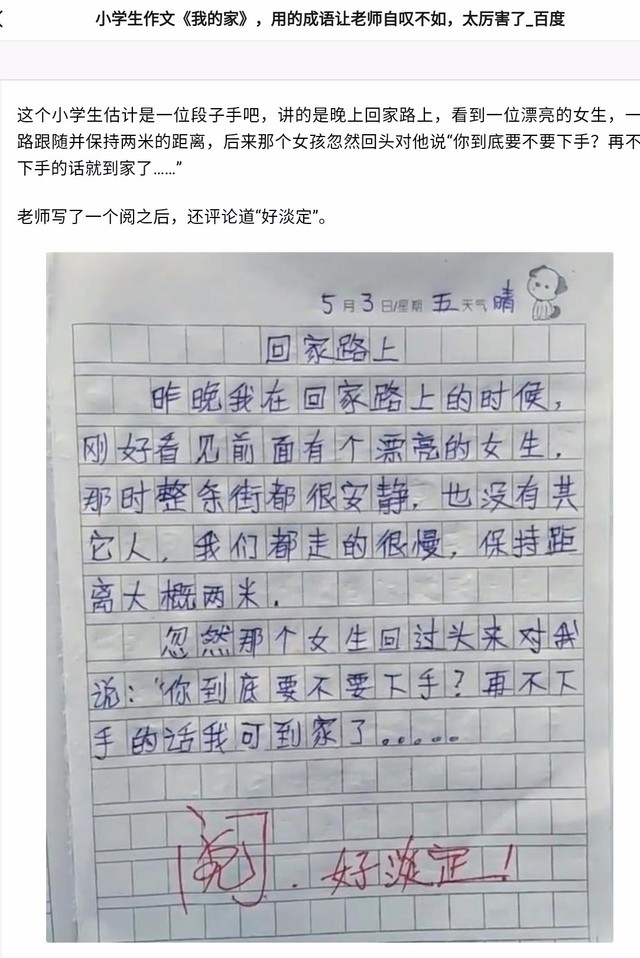 小学生作文《我的家》，用的成语让老师自叹不如，太厉害了_百度
这个小学生估计是一位段子手吧，讲的是晚上回家路上，看到一位漂亮的女生，一
路跟随并保持两米的距离，后来那个女孩忽然回头对他说“你到底要不要下手？再不
下手的话就到家了……”
老师写了一个阅之后，还评论道“好淡定”。
5月3日/星期 五 天气 晴
回家路上
昨晚我在回家路上的时候，
刚好看见前面有个漂亮的女生，
那时整条街都很安静，也没有其
它人，我们都走的很慢，保持距
离大概两米．
忽然那个女生回过头来对我
说：“你到底要不要下手？再不下
手的话我可到家了。。。。。
阅．好淡定！